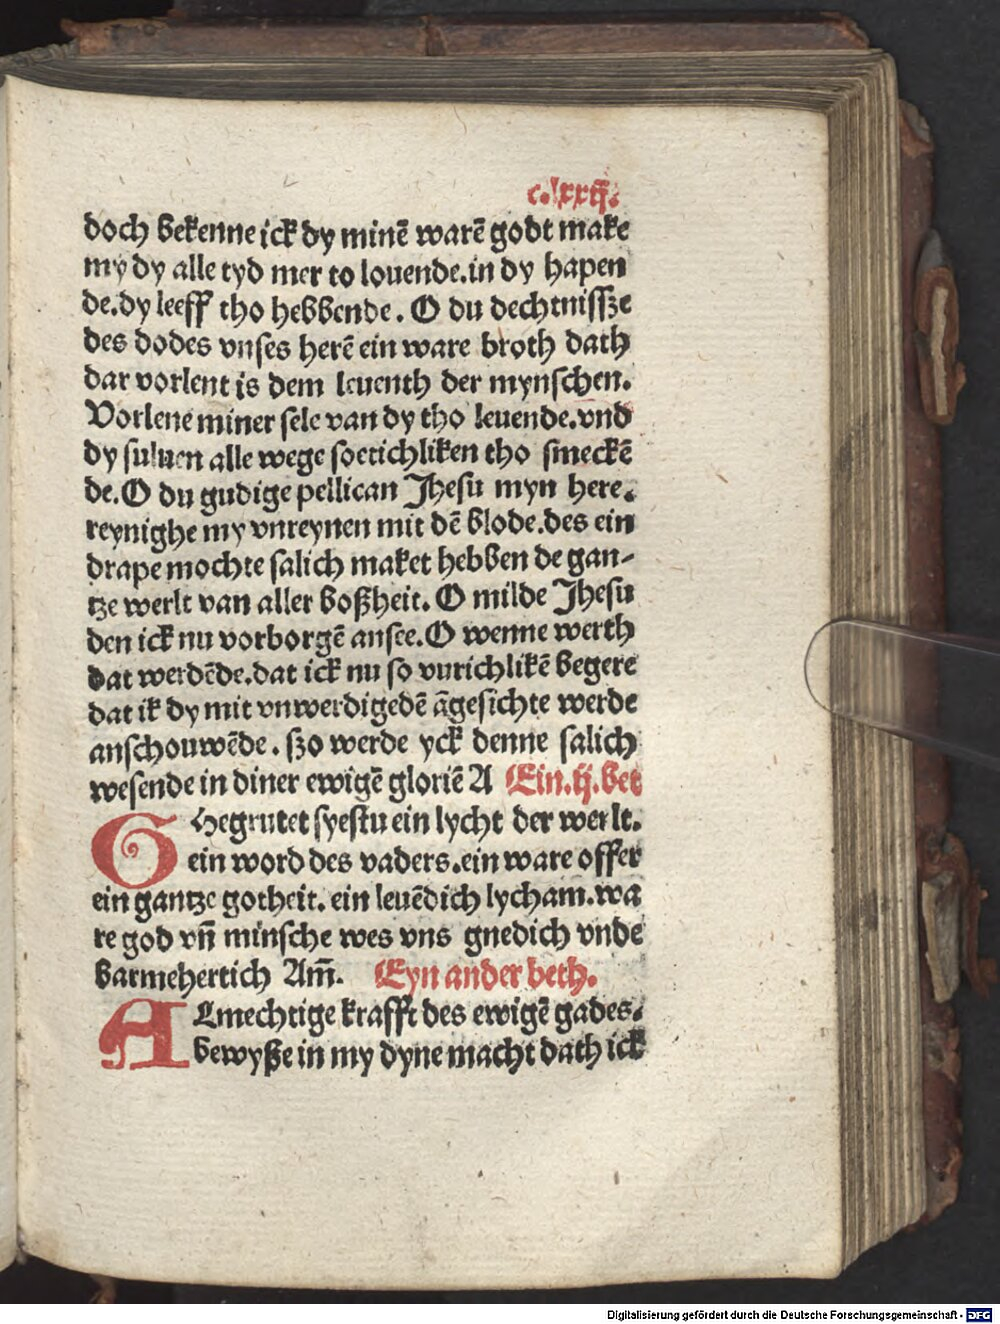 c.lxxij.
doch bekenne ick dy minē warē godt make
my dy alle tyd mer to louende.in dy hapen
de.dy leeff tho hebbende. O du dechtnissze
des dodes vnses herē ein ware broth dath
dar vorlent is dem leuenth der mynschen.
Vorlene miner sele van dy tho leuende.vnd
dy suluen alle wege soetichliken tho smeckē
de.O du gudige pellican Jhesu myn here.
reynighe my vnreynen mit dē blode.des ein
drape mochte salich maket hebben de gan-
tze werlt van aller boßheit. O milde Jhesu
den ick nu vorborgē ansee.O wenne werth
dat werdēde.dat ick nu so vurichlikē begere
dat ik dy mit vnwerdigedē āgesichte werde
anschouwēde. szo werde yck denne salich
wesende in diner ewigē gloriē A Ein.ij.bet
Ghegrutet syestu ein lycht der werlt.
ein word des vaders.ein ware offer
ein gantze gotheit. ein leuēdich lycham.wa
re god vn̄ minsche wes vns gnedich vnde
barmehertich Am̄. Eyn ander beth.
ALmechtige krafft des ewigē gades.
bewyße in my dyne macht dath ick
Digitalisierung gefördert durch die Deutsche Forschungsgemeinschaft - DFG